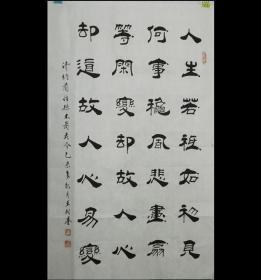 人生若祗如初見
何事穐風悲畫扇
等閑變却故人心
却道故人心易變